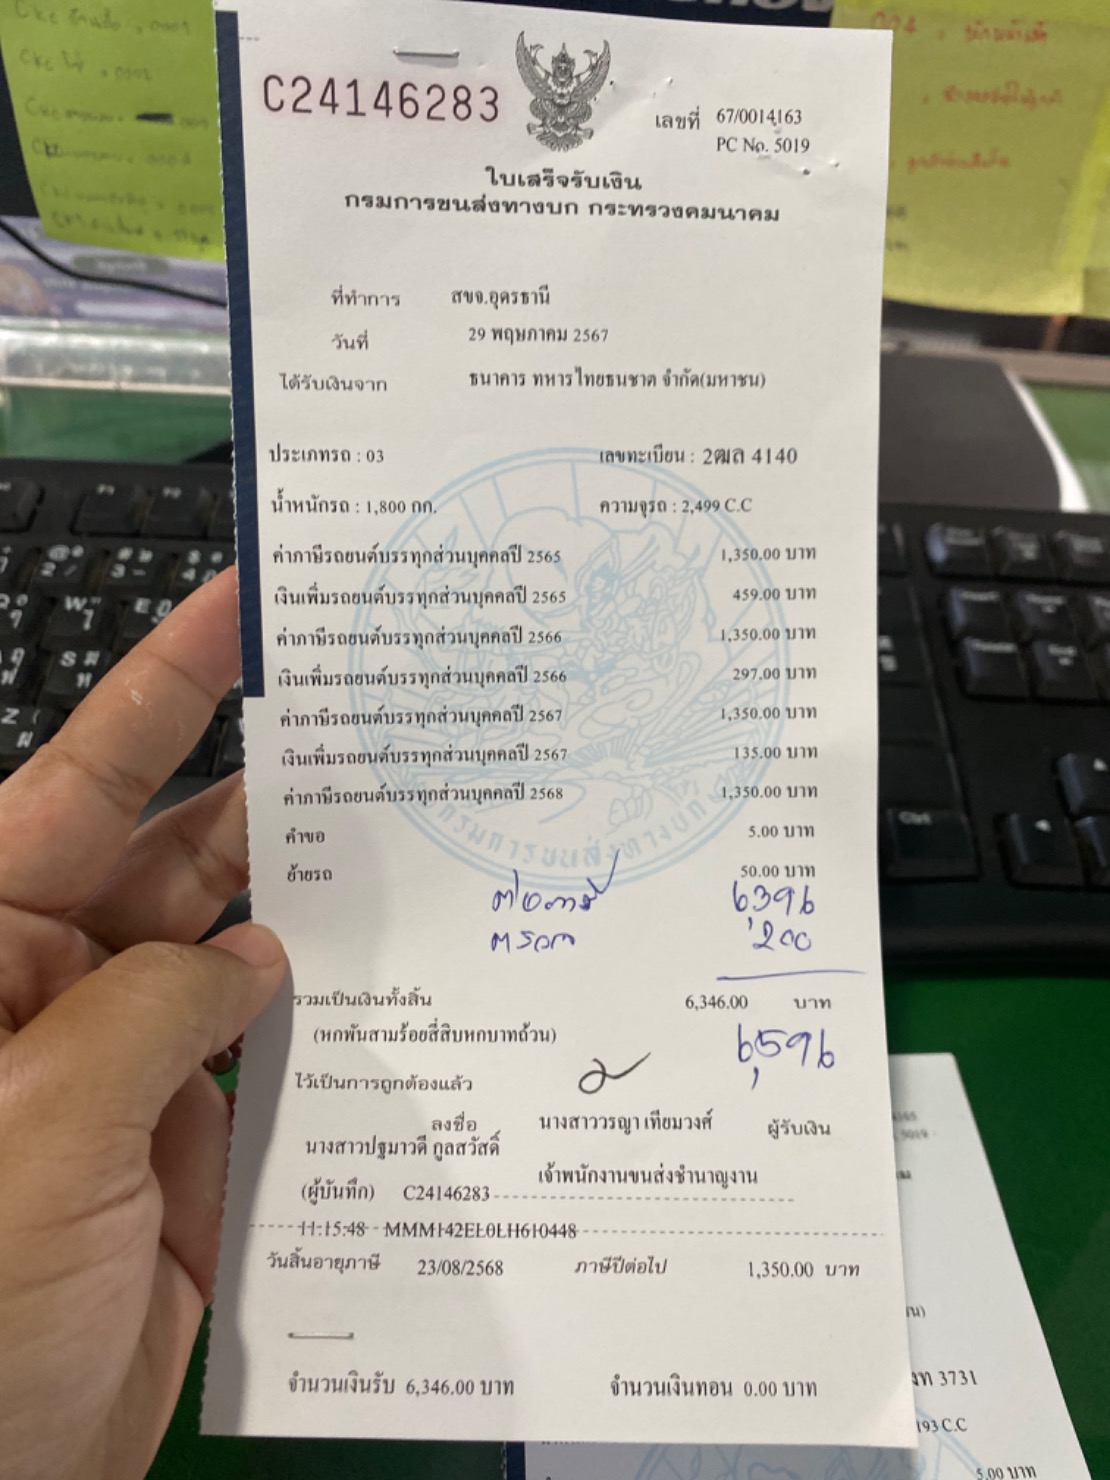 C24146283
เลขที่ 67/0014163
PC No. 5019
ใบเสร็จรับเงิน
กรมการขนส่งทางบก กระทรวงคมนาคม
ที่ทำการ สขจ.อุดรธานี
วันที่ 29 พฤษภาคม 2567
ได้รับเงินจาก ธนาคาร ทหารไทยธนชาต จำกัด(มหาชน)
ประเภทรถ : 03 เลขทะเบียน : 2ฒล 4140
น้ำหนักรถ : 1,800 กก. ความจุรถ : 2,499 C.C
ค่าภาษีรถยนต์บรรทุกส่วนบุคคลปี 2565 1,350.00 บาท
เงินเพิ่มรถยนต์บรรทุกส่วนบุคคลปี 2565 459.00 บาท
ค่าภาษีรถยนต์บรรทุกส่วนบุคคลปี 2566 1,350.00 บาท
เงินเพิ่มรถยนต์บรรทุกส่วนบุคคลปี 2566 297.00 บาท
ค่าภาษีรถยนต์บรรทุกส่วนบุคคลปี 2567 1,350.00 บาท
เงินเพิ่มรถยนต์บรรทุกส่วนบุคคลปี 2567 135.00 บาท
ค่าภาษีรถยนต์บรรทุกส่วนบุคคลปี 2568 1,350.00 บาท
คำขอ 5.00 บาท
ย้ายรถ 50.00 บาท
กรมการขนส่งทางบก
ต่อภาษี 6,396
ตรวจ 200
รวมเป็นเงินทั้งสิ้น 6,346.00 บาท
(หกพันสามร้อยสี่สิบหกบาทถ้วน)
6,596
ไว้เป็นการถูกต้องแล้ว
ลงชื่อ นางสาววรญา เทียมวงศ์ ผู้รับเงิน
นางสาวปฐมาวดี กูลสวัสดิ์
เจ้าพนักงานขนส่งชำนาญงาน
(ผู้บันทึก) C24146283
11:15:48 MMM142EL0LH610448
วันสิ้นอายุภาษี 23/08/2568 ภาษีปีต่อไป 1,350.00 บาท
จำนวนเงินรับ 6,346.00 บาท จำนวนเงินทอน 0.00 บาท
3731
193 C.C
5.00 บาท